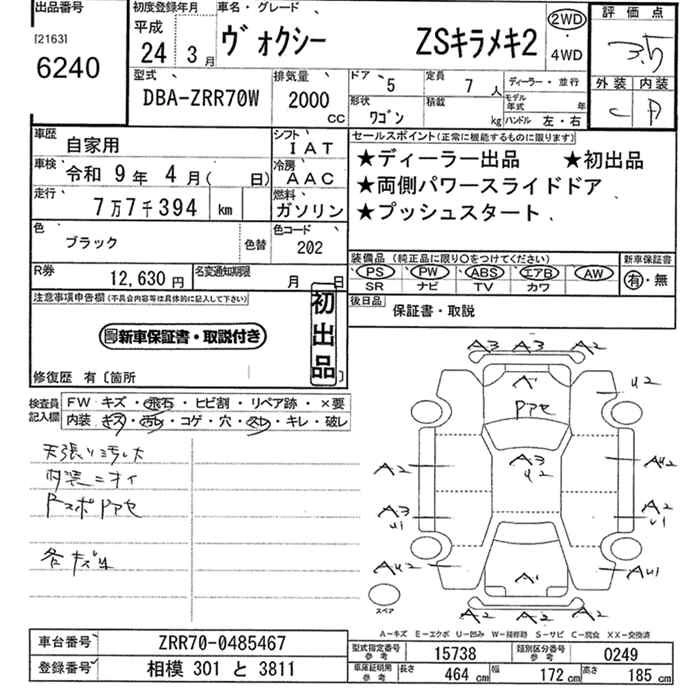 出品番号 初度登録年月 車名・グレード 評価点
[2163] 平成
6240 24年 3月 ヴォクシー ZSキラメキ2 2WD・4WD 3.5
型式 排気量 ドア 5 定員 7人 ディーラー・並行 外装 内装
DBA-ZRR70W 2000cc 形状 ワゴン 積載 kg モデル年式 年 ハンドル 左・右 C
車歴 自家用 シフト IAT セールスポイント(正常に機能するものに限ります)
車検 令和 9年 4月( 日) 冷房 AAC ★ディーラー出品 ★初出品
走行 7万7千394 km 燃料 ガソリン ★両側パワースライドドア
★プッシュスタート
色 ブラック 色替 色コード 202
装備品(純正品に限り○をつけてください) 新車保証書
R券 12,630円 名変通知期限 月 日 PS PW ABS エアB AW 有・無
SR ナビ TV カワ
注意事項申告欄(不具合内容等は具体的に記入して下さい) 初出品 後日品 保証書・取説
新車保証書・取説付き
修復歴 有〔箇所 〕
検査員記入欄 FW キズ・飛石・ヒビ割・リペア跡・×要
内装 キズ・汚れ・コゲ・穴・スレ・キレ・破レ
天張り汚れ大
内装ニオイ
FスポPアセ
各キズ凹
A3 A3 A2
A1
Pアセ
U2
A2
A3
U2
AU2
A3
U1
A2
U1
AU2
A1
AU1
A2 A2 A2
スペア
A-キズ E-エクボ U-凹み W-補修跡 S-サビ C-腐食 XX-交換済
車台番号 ZRR70-0485467 型式指定番号 参考 15738 類別区分番号 参考 0249
登録番号 相模 301 と 3811 車庫証明用 参考 長さ 464 cm 幅 172 cm 高さ 185 cm